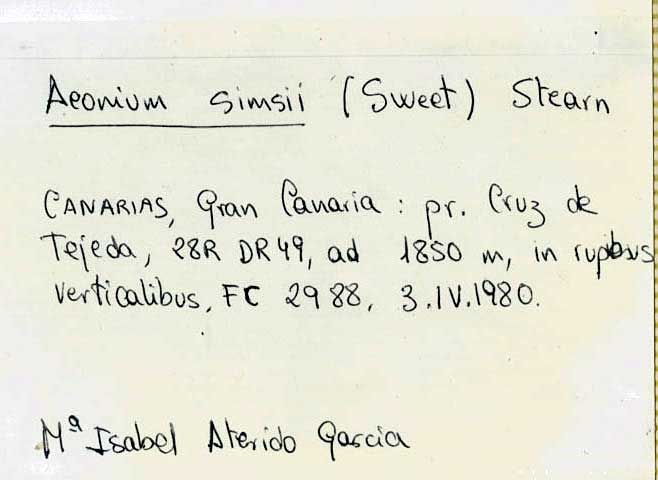 Aeonium simsii (Sweet) Stearn
CANARIAS, Gran Canaria : pr. Cruz de
Tejeda, 28R DR49, ad 1850 m, in rupibus
verticalibus, FC 2988, 3.IV.1980.
Mª Isabel Aterido Garcia